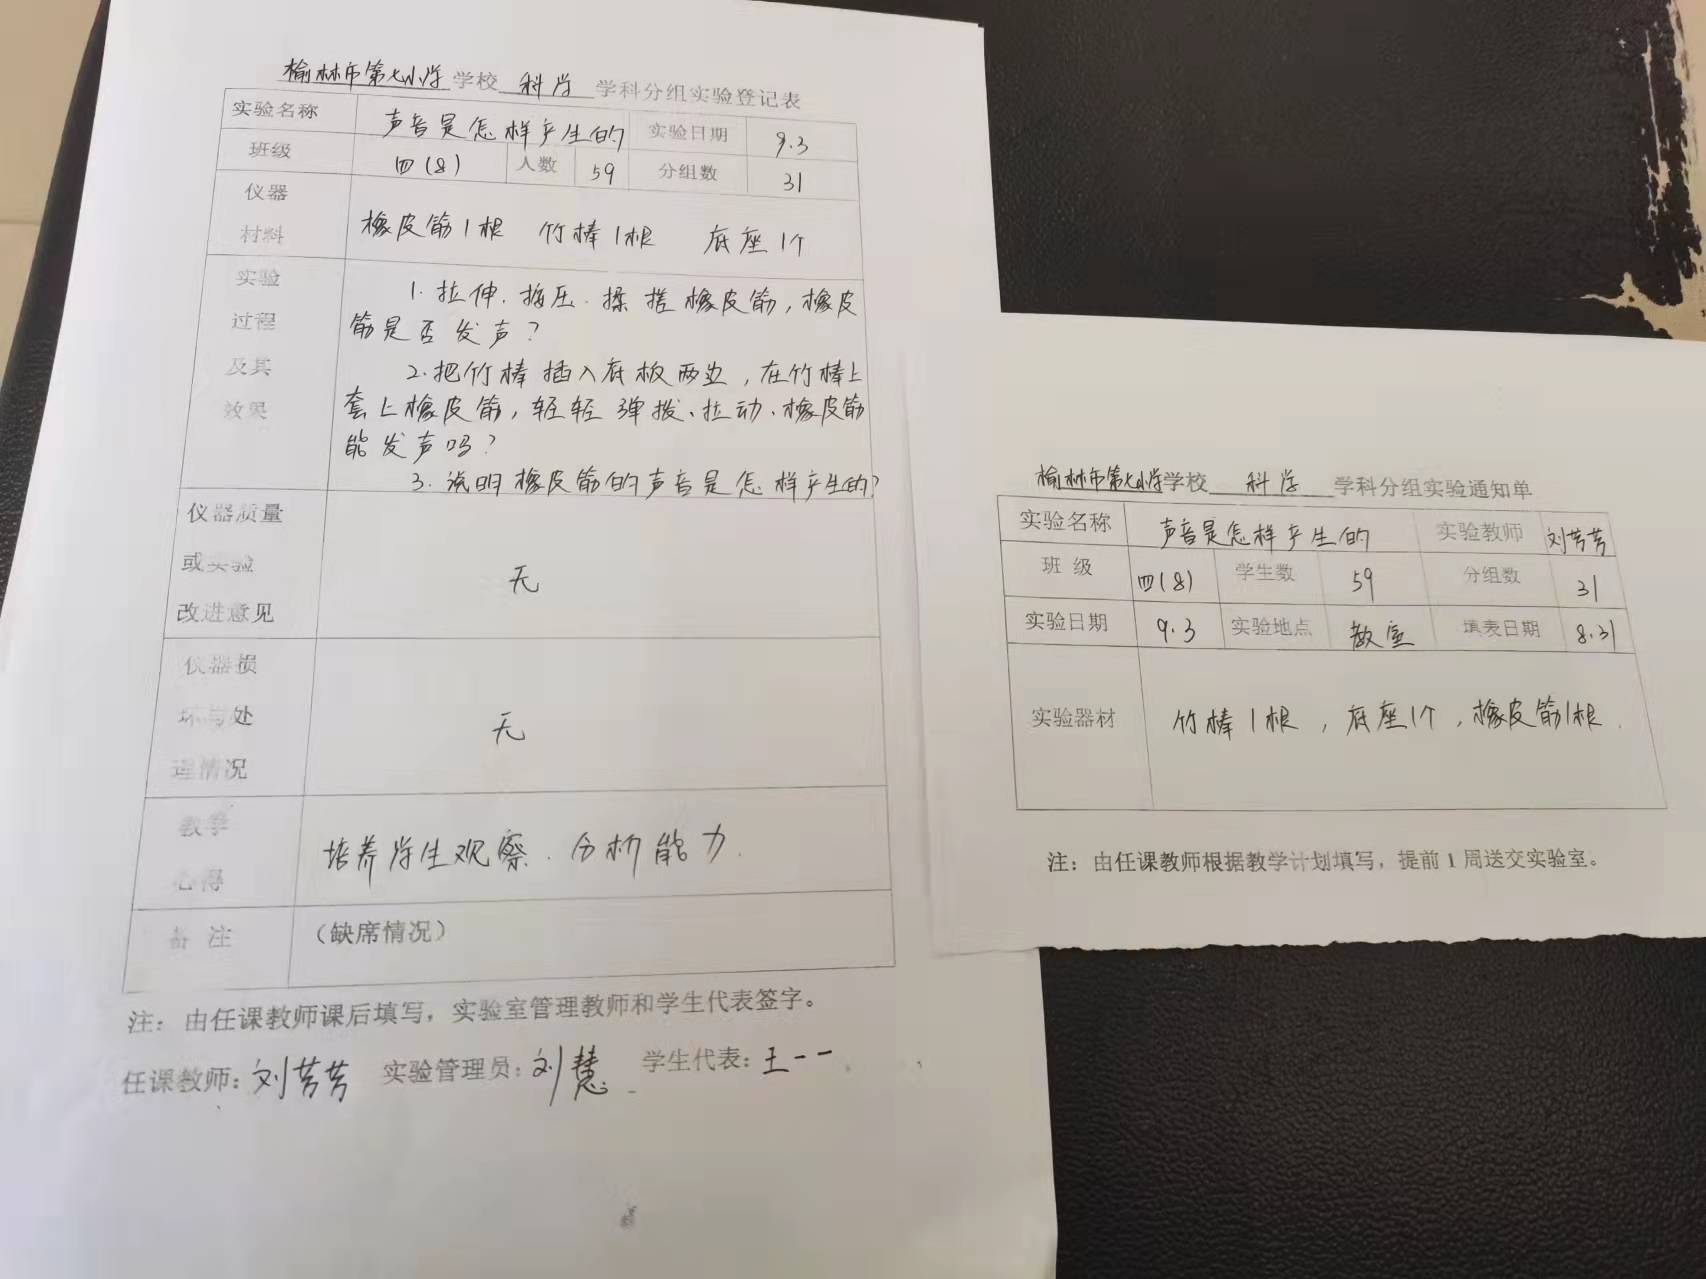 榆林市第七小学学校 科学 学科分组实验登记表
实验名称 声音是怎样产生的 实验日期 9.3
班级 四(8) 人数 59 分组数 31
仪器材料 橡皮筋1根 竹棒1根 底座1个
实验过程及其效果
1.拉伸、按压、揉搓橡皮筋,橡皮
筋是否发声?
2.把竹棒插入底板两边,在竹棒上
套上橡皮筋,轻轻弹拨、拉动、橡皮筋
能发声吗?
3.说明橡皮筋的声音是怎样产生的?
仪器质量或实验改进意见 无
仪器损坏与处理情况 无
教学心得 培养学生观察、分析能力.
备注 (缺席情况)
注:由任课教师课后填写,实验室管理教师和学生代表签字。
任课教师:刘芳芳 实验管理员:刘慧 学生代表:王一一
榆林市第七小学学校 科学 学科分组实验通知单
实验名称 声音是怎样产生的 实验教师 刘芳芳
班级 四(8) 学生数 59 分组数 31
实验日期 9.3 实验地点 教室 填表日期 8.31
实验器材 竹棒1根,底座1个,橡皮筋1根.
注:由任课教师根据教学计划填写,提前1周送交实验室。